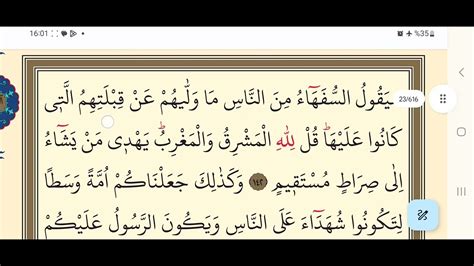 16:01
%35
سَيَقُولُ السُّفَهَٓاءُ مِنَ النَّاسِ مَا وَلّٰيهُمْ عَنْ قِبْلَتِهِمُ الَّتٖى
23/616
كَانُوا عَلَيْهَاۜ قُلْ لِلّٰهِ الْمَشْرِقُ وَالْمَغْرِبُۜ يَهْدٖى مَنْ يَشَٓاءُ
اِلٰى صِرَاطٍ مُسْتَقٖيمٍ ١٤٢ وَكَذٰلِكَ جَعَلْنَاكُمْ اُمَّةً وَسَطاً
لِتَكُونُوا شُهَدَٓاءَ عَلَى النَّاسِ وَيَكُونَ الرَّسُولُ عَلَيْكُمْ